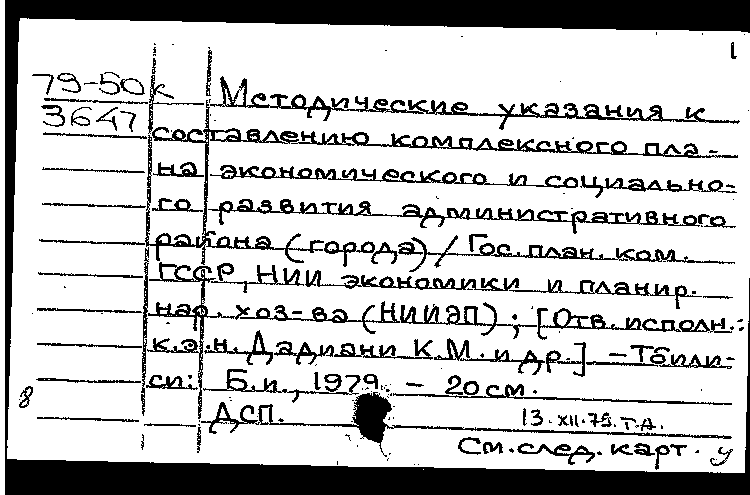 1
79-50к Методические указания к
3647 составлению комплексного пла-
на экономического и социально-
го развития административного
района (города) / Гос. план. ком.
ГССР, НИИ экономики и планир.
нар. хоз-ва (НИИЭП) ; [Отв. исполн.:
к.э.н. Дадиани К.М. и др.] - Тбили-
си: Б.и., 1979. - 20 см.
8 ДСП. 13.XII.79. Т.А.
См. след. карт. у